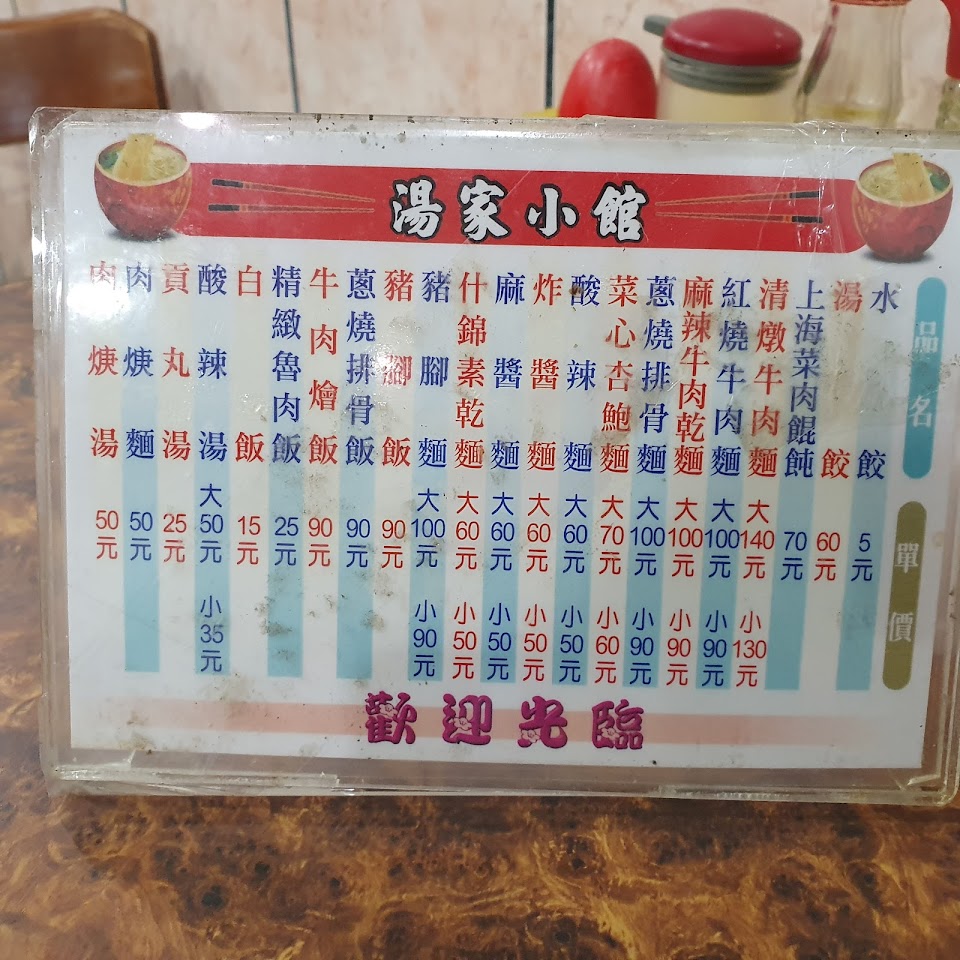 湯家小館
品名
單價
水餃 5元
湯餃 60元
上海菜肉餛飩 70元
清燉牛肉麵 大140元 小130元
紅燒牛肉麵 大100元 小90元
麻辣牛肉乾麵 大100元 小90元
蔥燒排骨麵 大100元 小90元
菜心杏鮑麵 大70元 小60元
酸辣麵 大60元 小50元
炸醬麵 大60元 小50元
麻醬麵 大60元 小50元
什錦素乾麵 大60元 小50元
豬腳麵 大100元 小90元
豬腳飯 90元
蔥燒排骨飯 90元
牛肉燴飯 90元
精緻魯肉飯 25元
白飯 15元
酸辣湯 大50元 小35元
貢丸湯 25元
肉焿麵 50元
肉焿湯 50元
歡迎光臨